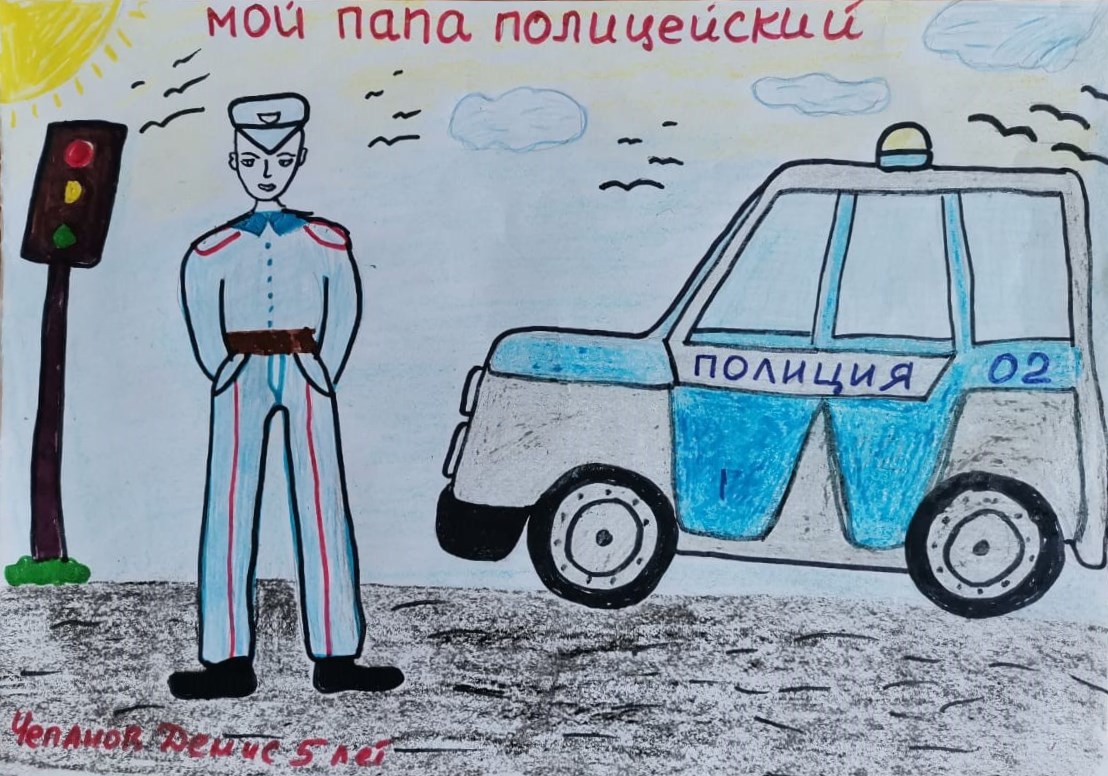 мой папа полицейский
ПОЛИЦИЯ 02
Чепанов Денис 5 лет